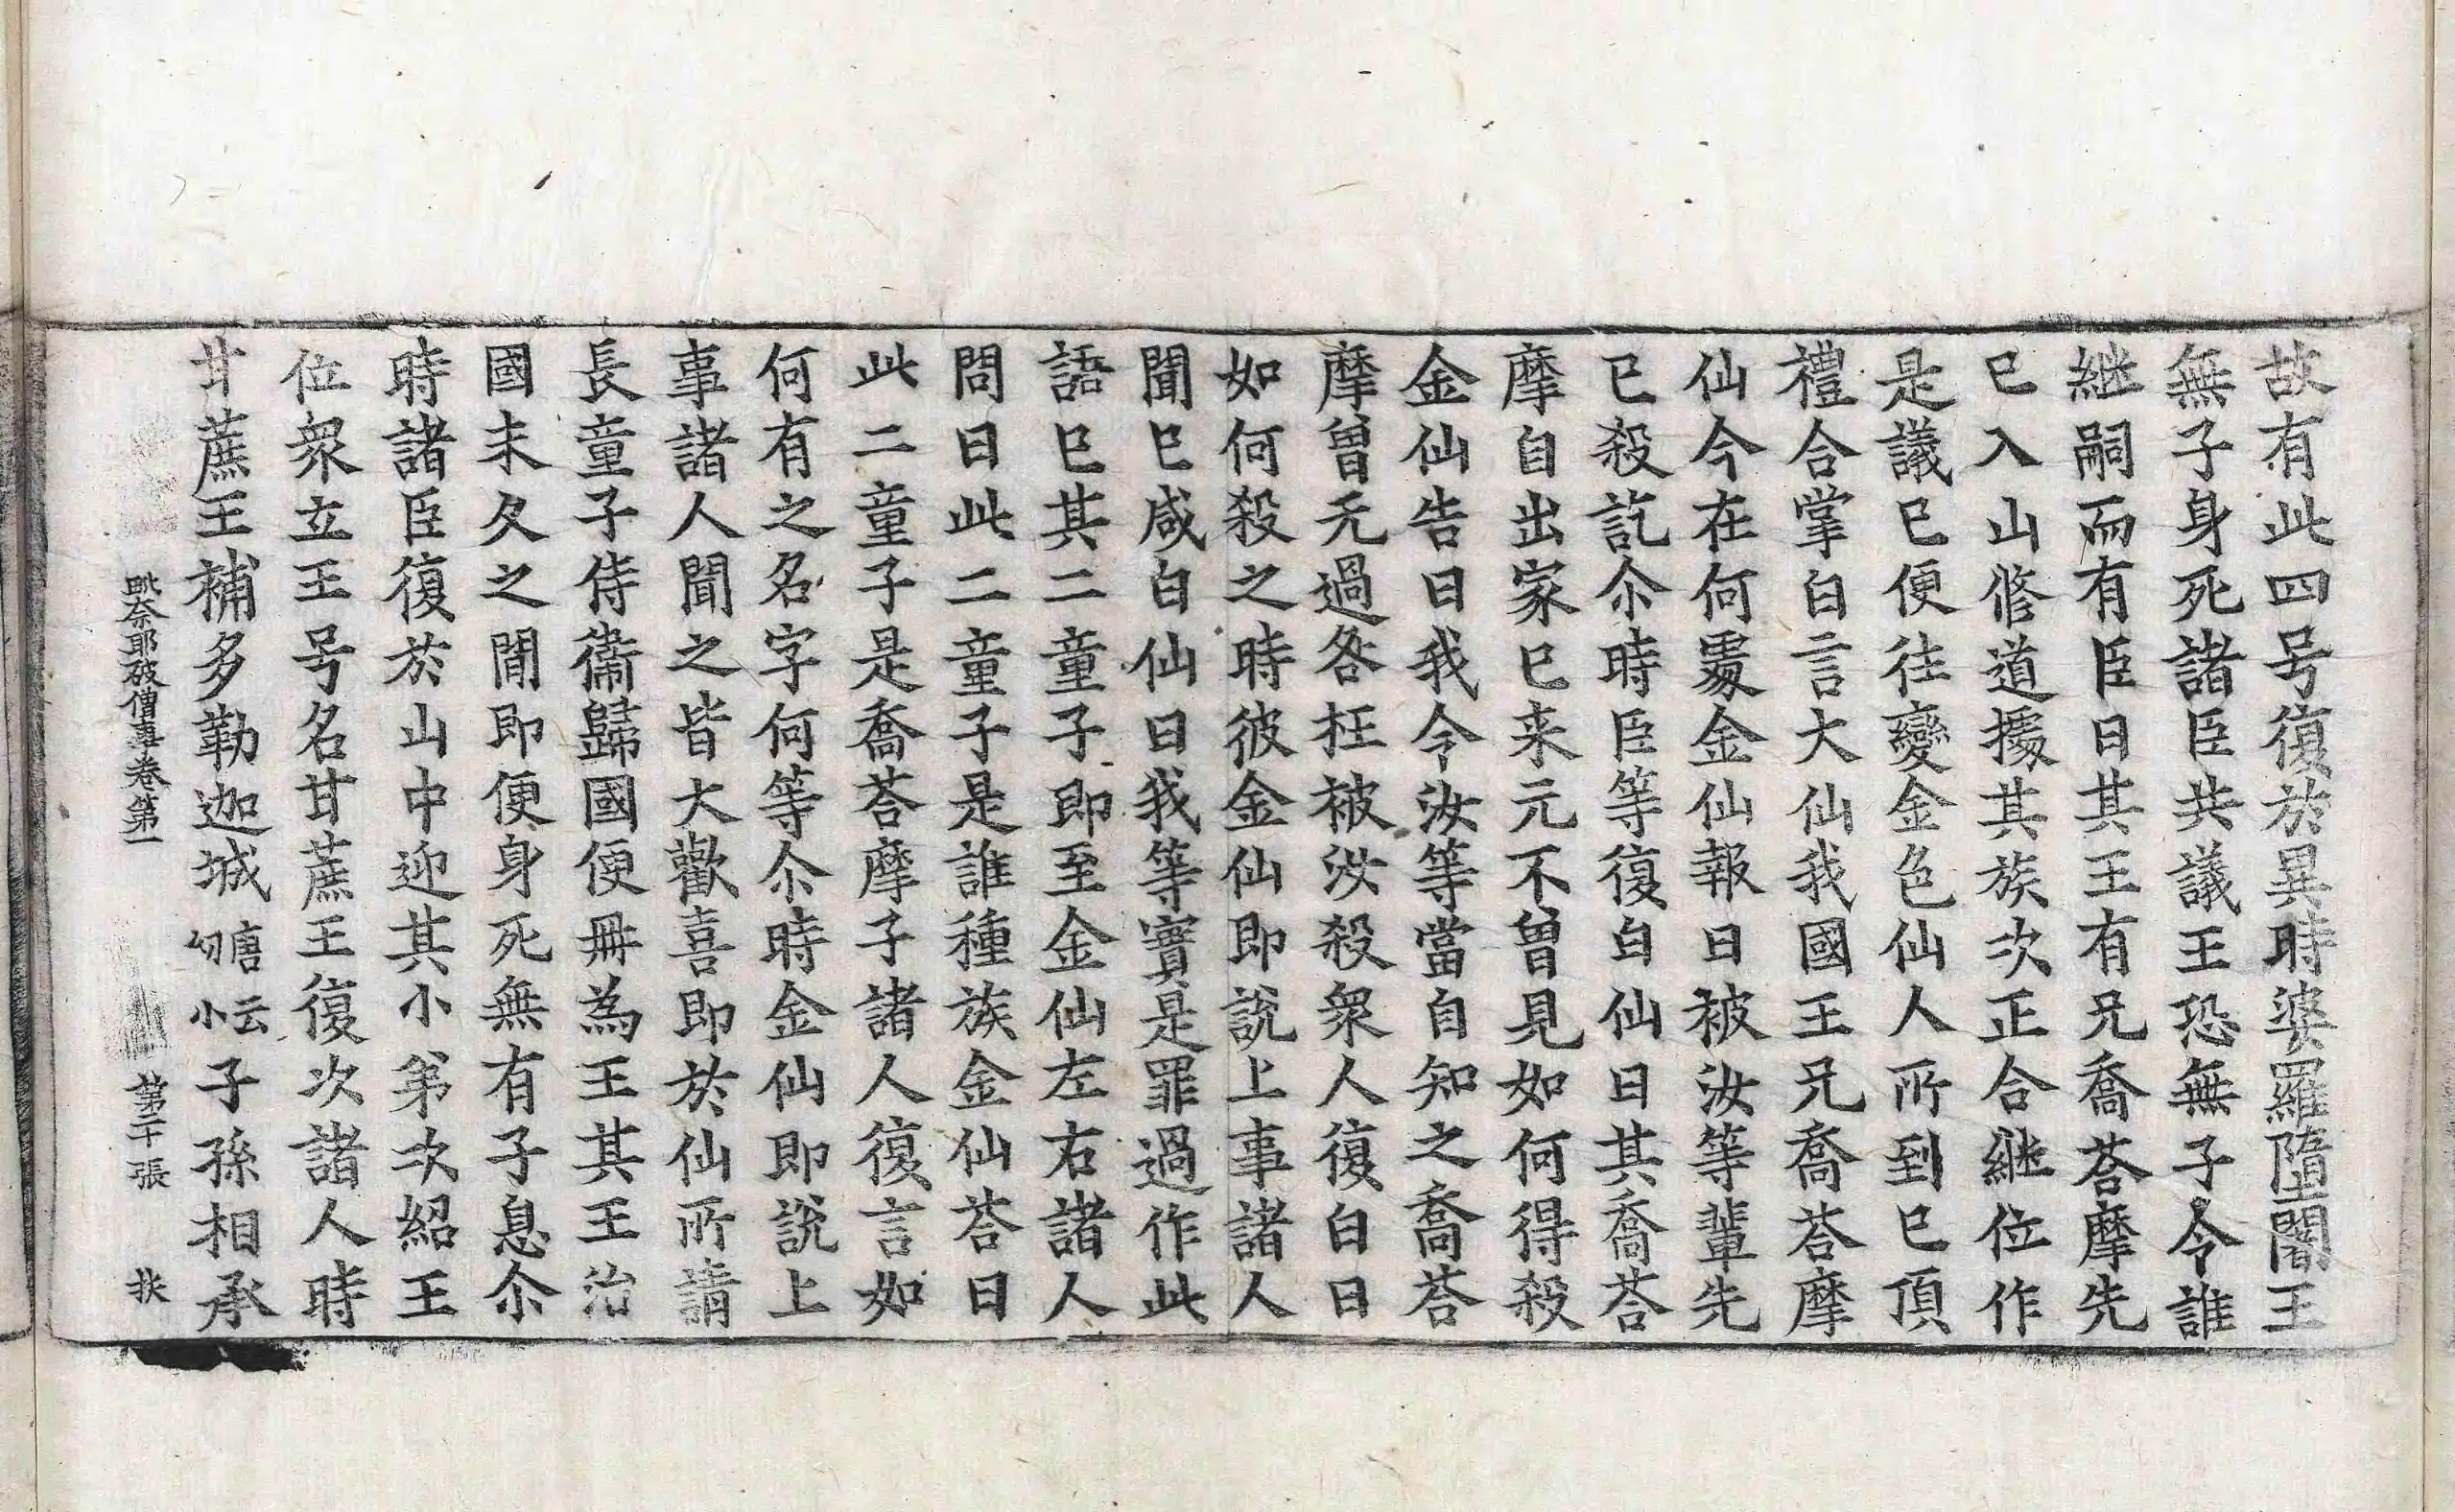 故有此四号復於異時婆羅墮闍王
無子身死諸臣共議王恐無子令誰
継嗣而有臣曰其王有兄喬荅摩先
已入山修道擾其族次正合継位作
是議已便往變金色仙人所到已頂
禮合掌白言大仙我國王兄喬荅摩
仙今在何處金仙報曰被汝等輩先
已殺訖尒時臣等復白仙曰其喬荅
摩自出家已来元不曾見如何得殺
金仙告曰我今汝等當自知之喬荅
摩曾无過咎枉被汝殺衆人復白曰
如何殺之時彼金仙即說上事諸人
聞已咸白仙曰我等實是罪過作此
語已其二童子即至金仙左右諸人
問曰此二童子是誰種族金仙荅曰
此二童子是喬荅摩子諸人復言如
何有之名字何等尒時金仙即說上
事諸人聞之皆大歡喜即於仙所請
長童子侍衛歸國便冊為王其王治
國未久之閒即便身死無有子息尒
時諸臣復於山中迎其小弟次紹王
位衆立王号名甘蔗王復次諸人時
甘蔗王補多勒迦城唐云切小子孫相承
毗奈耶破僧事卷第一 第二十張 狄